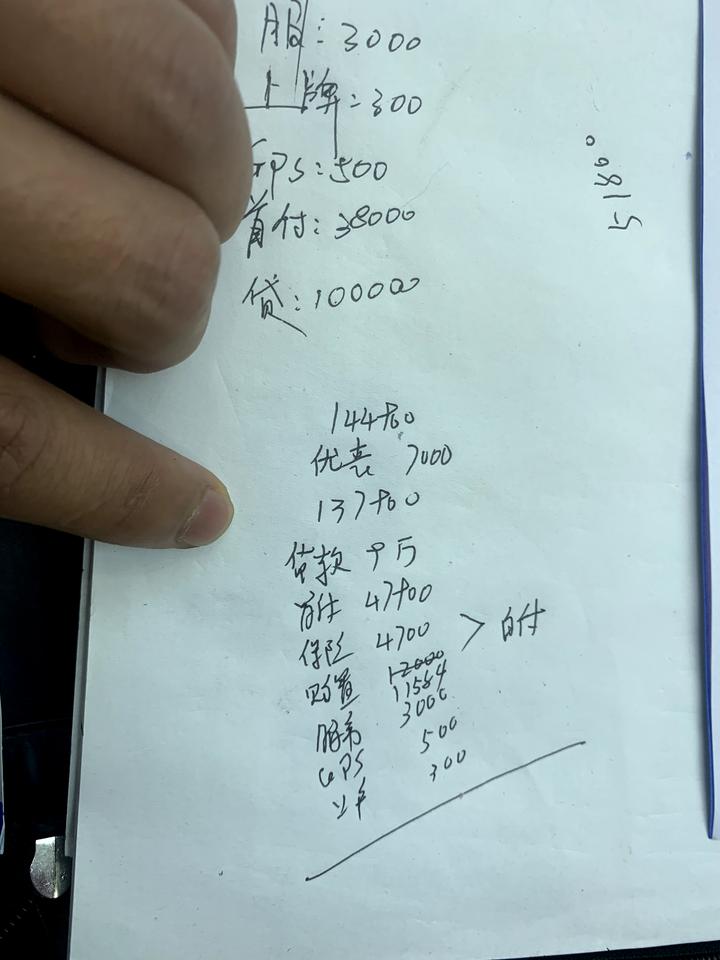 服：3000
上牌：300
GPS：500
首付：38000
贷：100000
51800
144800
优惠 7000
137800
贷款 9万
首付 47800
保险 4700 > 自付
购置 12000
11584
服务 3000
GPS 500
上户 300